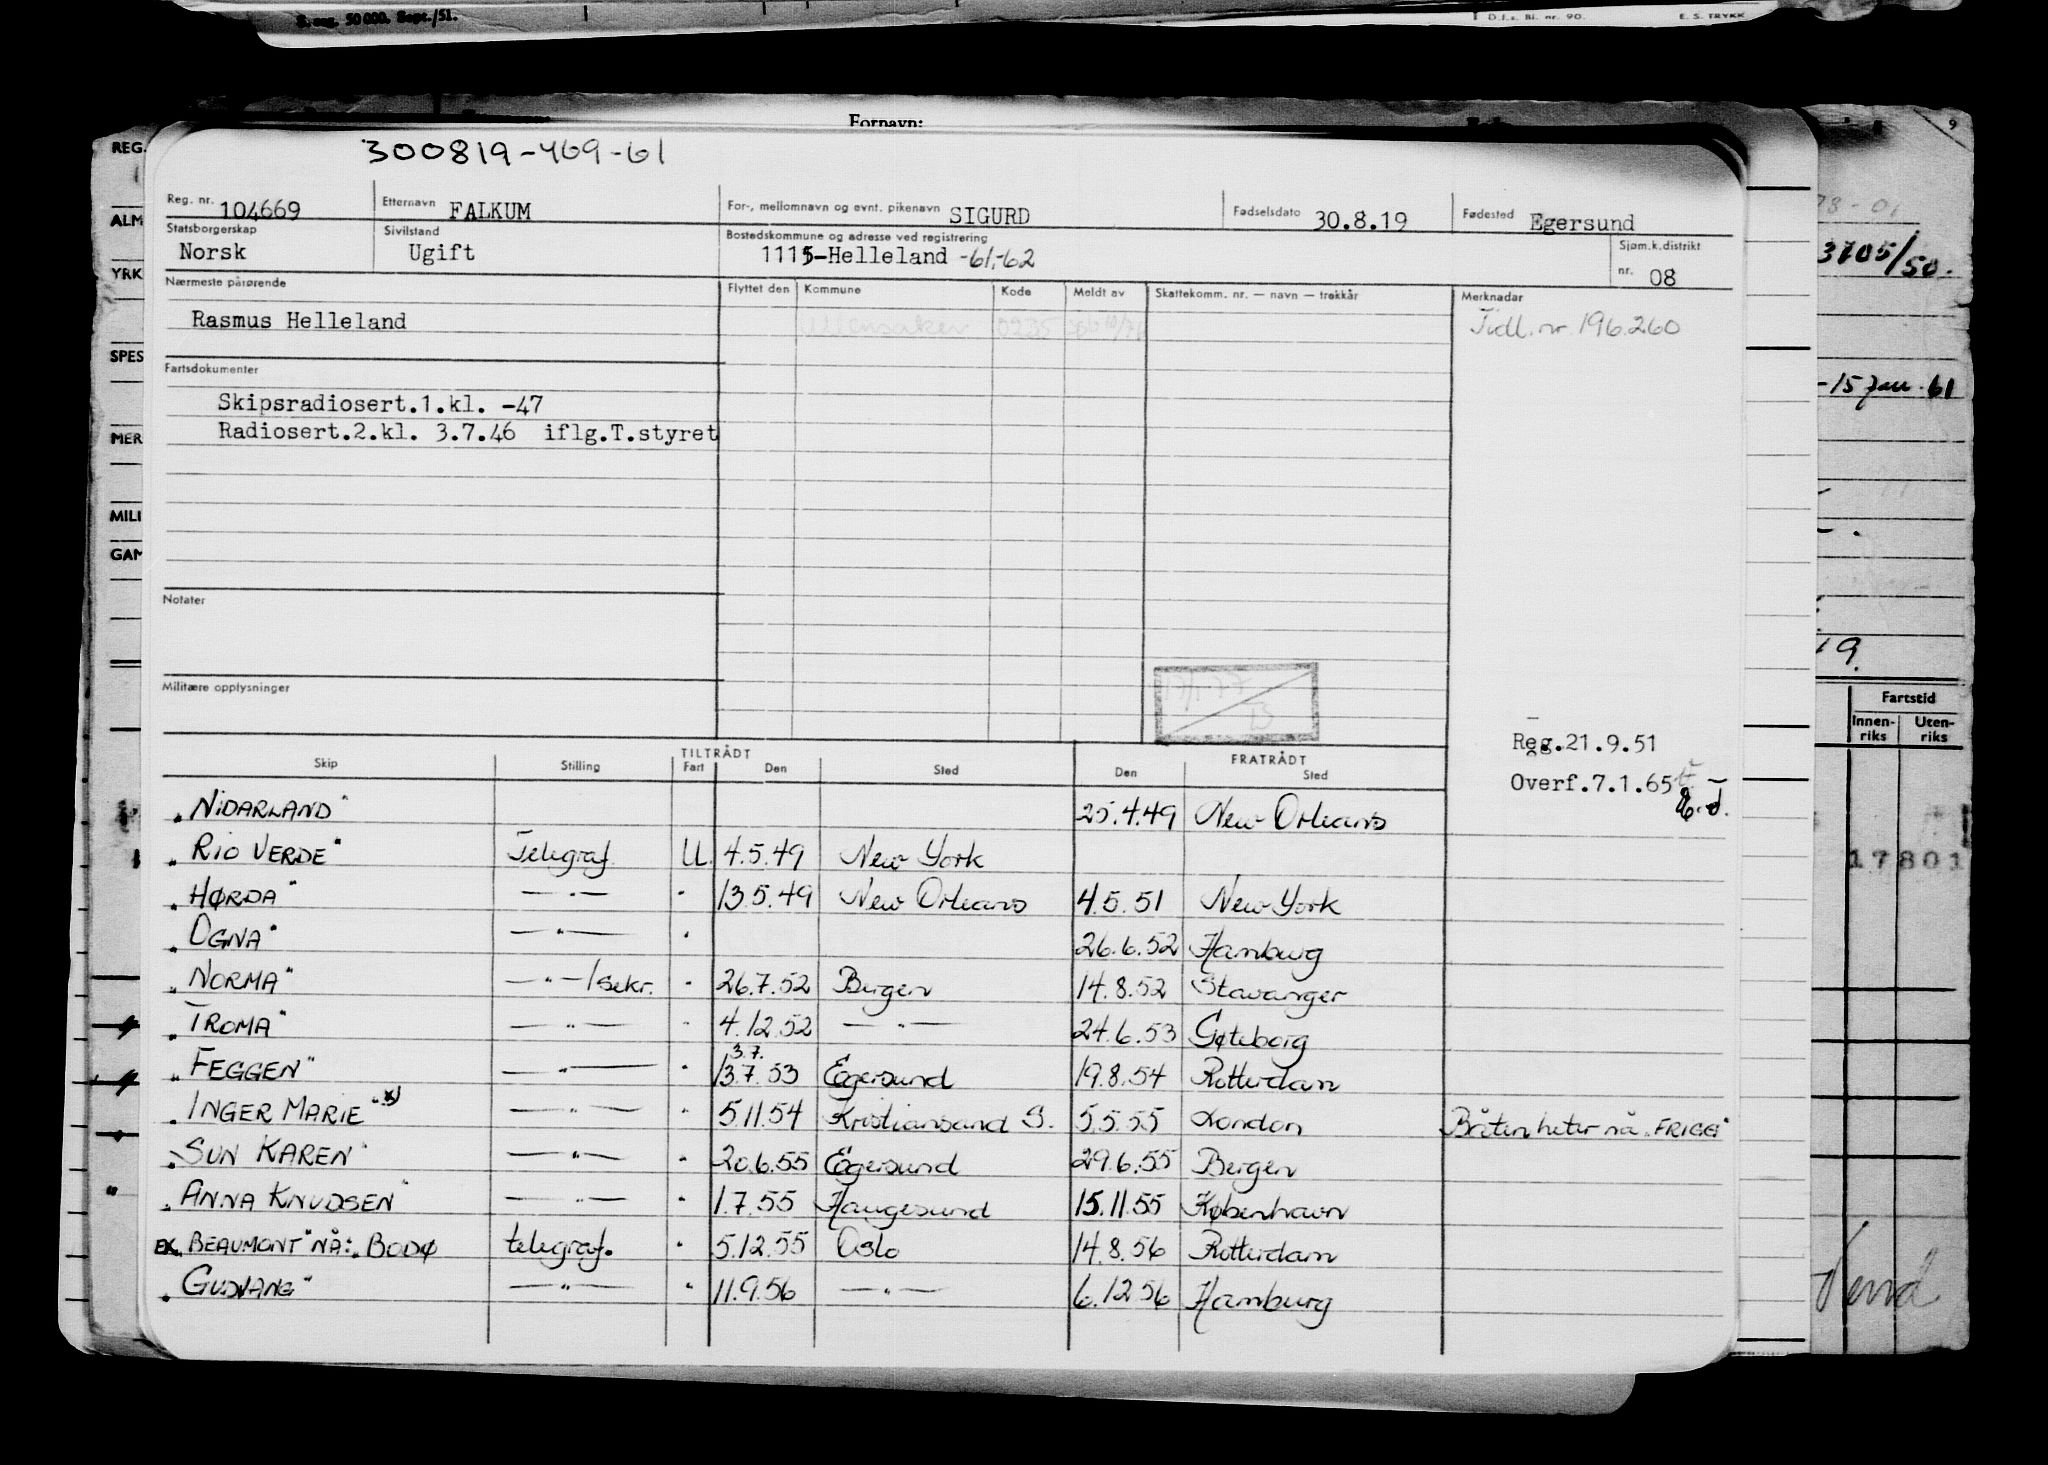 S. eng. 50 000. Sept./51.
D.f.s. Bl. nr. 90. E. S. TRYKK
Fornavn:
9
REG.
ALM
YRK
SPES
MER
MILI
GAM
300819-469-61
Reg. nr. 104669 Etternavn FALKUM For-, mellomnavn og evnt. pikenavn SIGURD Fødselsdato 30.8.19 Fødested Egersund
Statsborgerskap Norsk Sivilstand Ugift Bostedskommune og adresse ved registrering 1115-Helleland -61,-62 Sjøm.k.distrikt nr. 08
Nærmeste pårørende Flyttet den Kommune Kode Meldt av Skattekomm. nr. — navn — trekkår Merknadar
Rasmus Helleland Ullensaker 0235 Tidl. nr. 196.260
Fartsdokumenter
Skipsradiosert.1.kl. -47
Radiosert.2.kl. 3.7.46 iflg.T.styret
Notater
Militære opplysninger
17/1-77
Reg.21.9.51
Overf.7.1.65
3705/50.
-15 Jan. 61
19.
Fartstid
Innen-riks Uten-riks
17801
TILTRÅDT FRATRÅDT
Skip Stilling Fart Den Sted Den Sted
"NIDARLAND" 25.4.49 New Orleans
"RIO VERDE" Telegraf. U. 4.5.49 New York
"HØRDA" —"— " 13.5.49 New Orleans 4.5.51 New York
"OGNA" —"— " 26.6.52 Hamburg
"NORMA" —"—/sekr. " 26.7.52 Bergen 14.8.52 Stavanger
"TROMA" —"— " 4.12.52 —"— 24.6.53 Gøteborg
3.7.
"FEGGEN" —"— " 13.7.53 Egersund 19.8.54 Rotterdam
"INGER MARIE" x) —"— " 5.11.54 Kristiansand S. 5.5.55 London Båten heter nå "FRIGG"
"SUN KAREN" —"— " 20.6.55 Egersund 29.6.55 Bergen
"ANNA KNUDSEN" —"— " 1.7.55 Haugesund 15.11.55 København
EX. "BEAUMONT" NÅ: "BODØ telegraf. " 5.12.55 Oslo 14.8.56 Rotterdam
"GUDVANG" —"— " 11.9.56 —"— 6.12.56 Hamburg